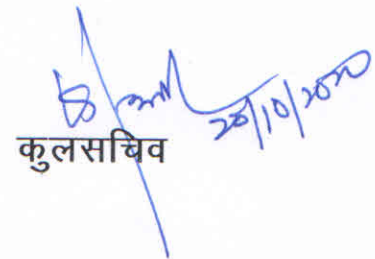 20/10/2020
कुलसचिव